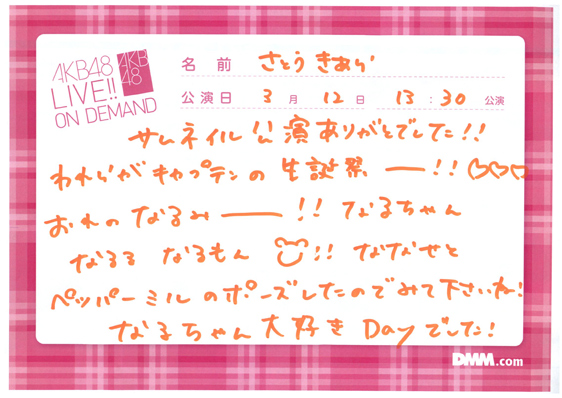 AKB48
LIVE!!
ON DEMAND
AKB
48
名前 さとう きあら
公演日 3月 12日 13:30 公演
サムネイル公演ありがとでした!!
われらがキャプテンの生誕祭ー!!♡♡♡
おれのなるみー!! なるちゃん
なるる なるもん !! ななせと
ペッパーミルのポーズしたのでみて下さいね!
なるちゃん大好きDayでした!
DMM.com